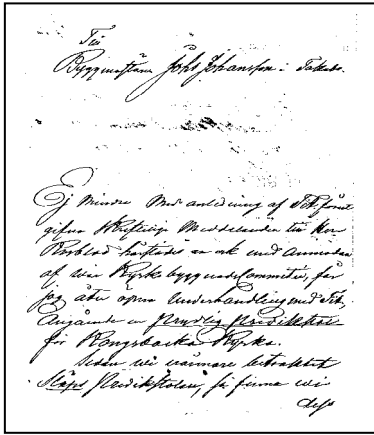 Till
Byggmästare Johs Johansson i Tabo.
Ej mindre med anledning af Tit. förut
gifna skriftliga Meddelanden till Herr
Norblad härstädes än ock med Anmodan
af vår Kyrkobyggnadskommitté, får
jag åter öpna Underhandling med Tit.
Angående en prydlig Predikstol
för Kongsbacka Kyrka.
Sedan vi närmare betraktat
Släps Predikstolen, så finna vi
dess